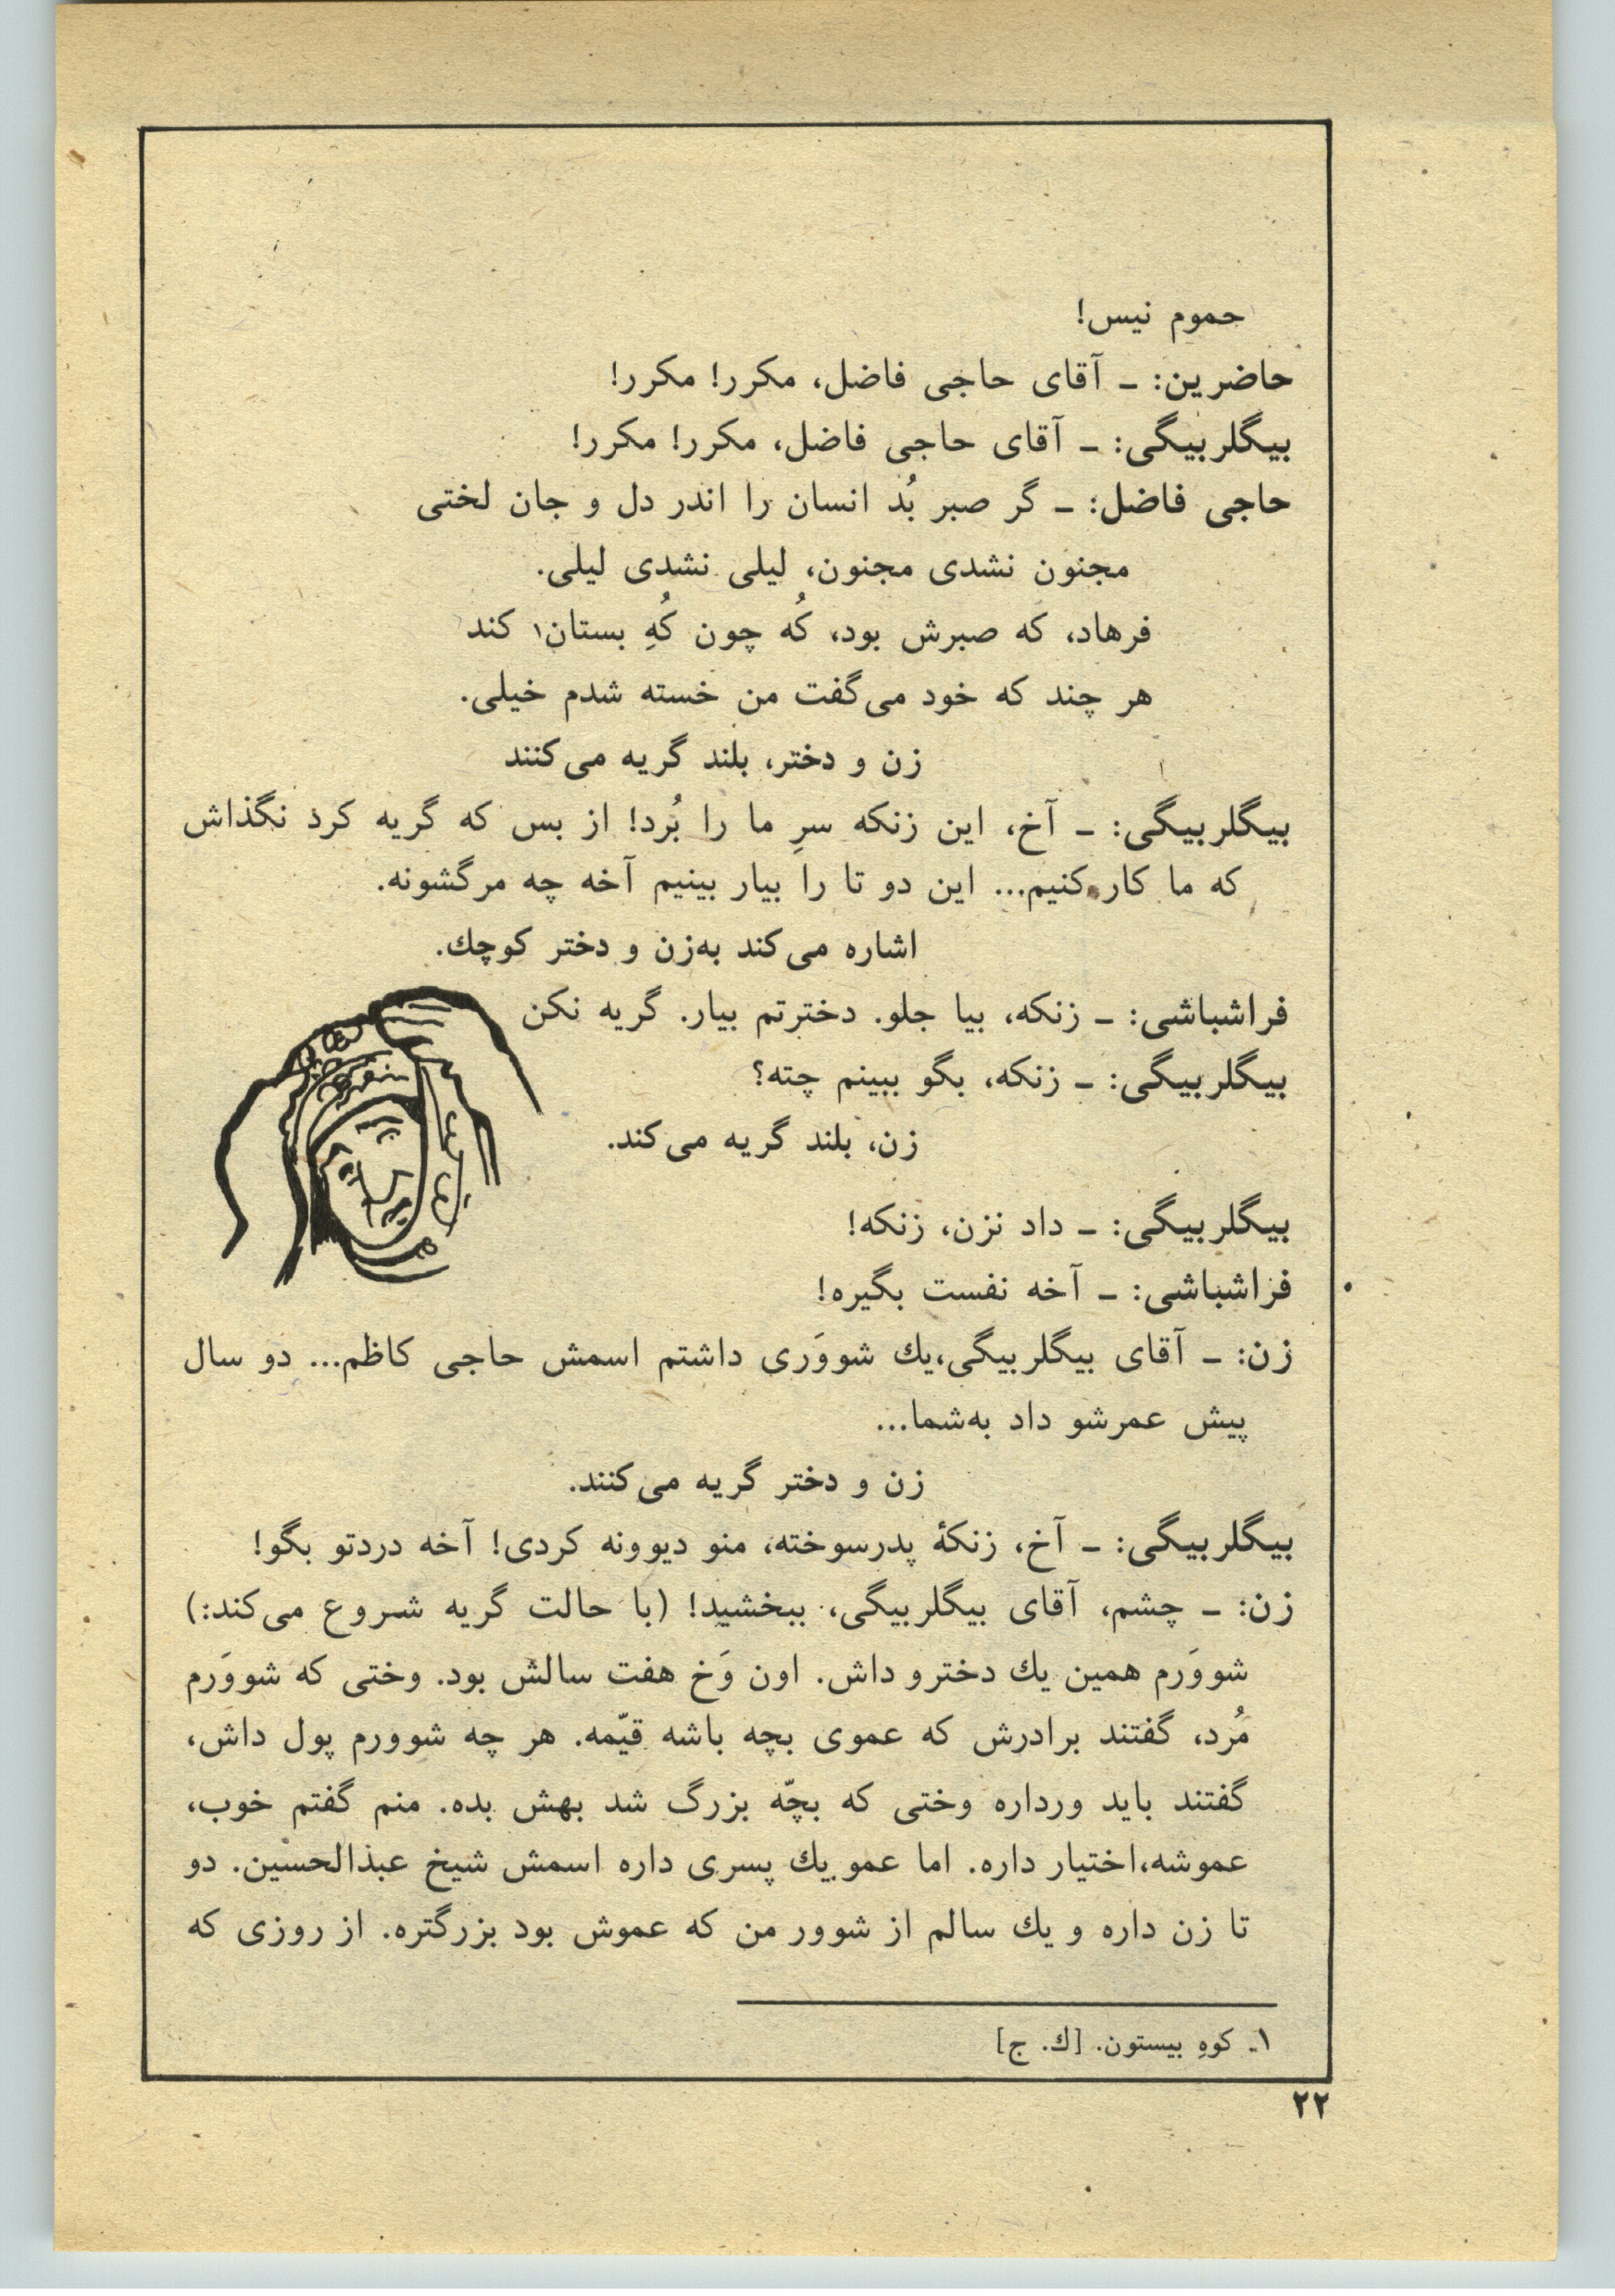 حموم نیس!
حاضرین: ـ آقای حاجی فاضل، مکرر! مکرر!
بیگلربیگی: ـ آقای حاجی فاضل، مکرر! مکرر!
حاجی فاضل: ـ گر صبر بُد انسان را اندر دل و جان لختی
مجنون نشدی مجنون، لیلی نشدی لیلی.
فرهاد، که صبرش بود، کُه چون کُهِ بستان۱ کند
هر چند که خود می‌گفت من خسته شدم خیلی.
زن و دختر، بلند گریه می‌کنند
بیگلربیگی: ـ آخ، این زنکه سرِ ما را بُرد! از بس که گریه کرد نگذاش
که ما کار کنیم... این دو تا را بیار بینیم آخه چه مرگشونه.
اشاره می‌کند به‌زن و دختر کوچك.
فراشباشی: ـ زنکه، بیا جلو. دخترتم بیار. گریه نکن
بیگلربیگی: ـ زنکه، بگو ببینم چته؟
زن، بلند گریه می‌کند.
بیگلربیگی: ـ داد نزن، زنکه!
فراشباشی: ـ آخه نفست بگیره!
زن: ـ آقای بیگلربیگی،یك شووَری داشتم اسمش حاجی کاظم... دو سال
پیش عمرشو داد به‌شما...
زن و دختر گریه می‌کنند.
بیگلربیگی: ـ آخ، زنکهٔ پدرسوخته، منو دیوونه کردی! آخه دردتو بگو!
زن: ـ چشم، آقای بیگلربیگی، ببخشید! (با حالت گریه شروع می‌کند:)
شووَرم همین یك دخترو داش. اون وَخ هفت سالش بود. وختی که شووَرم
مُرد، گفتند برادرش که عموی بچه باشه قیّمه. هر چه شوورم پول داش،
گفتند باید ورداره وختی که بچّه بزرگ شد بهش بده. منم گفتم خوب،
عموشه،اختیار داره. اما عمو یك پسری داره اسمش شیخ عبدالحسین. دو
تا زن داره و یك سالم از شوور من که عموش بود بزرگتره. از روزی که
۱ـ کوهِ بیستون. [ك. ج]
۲۲